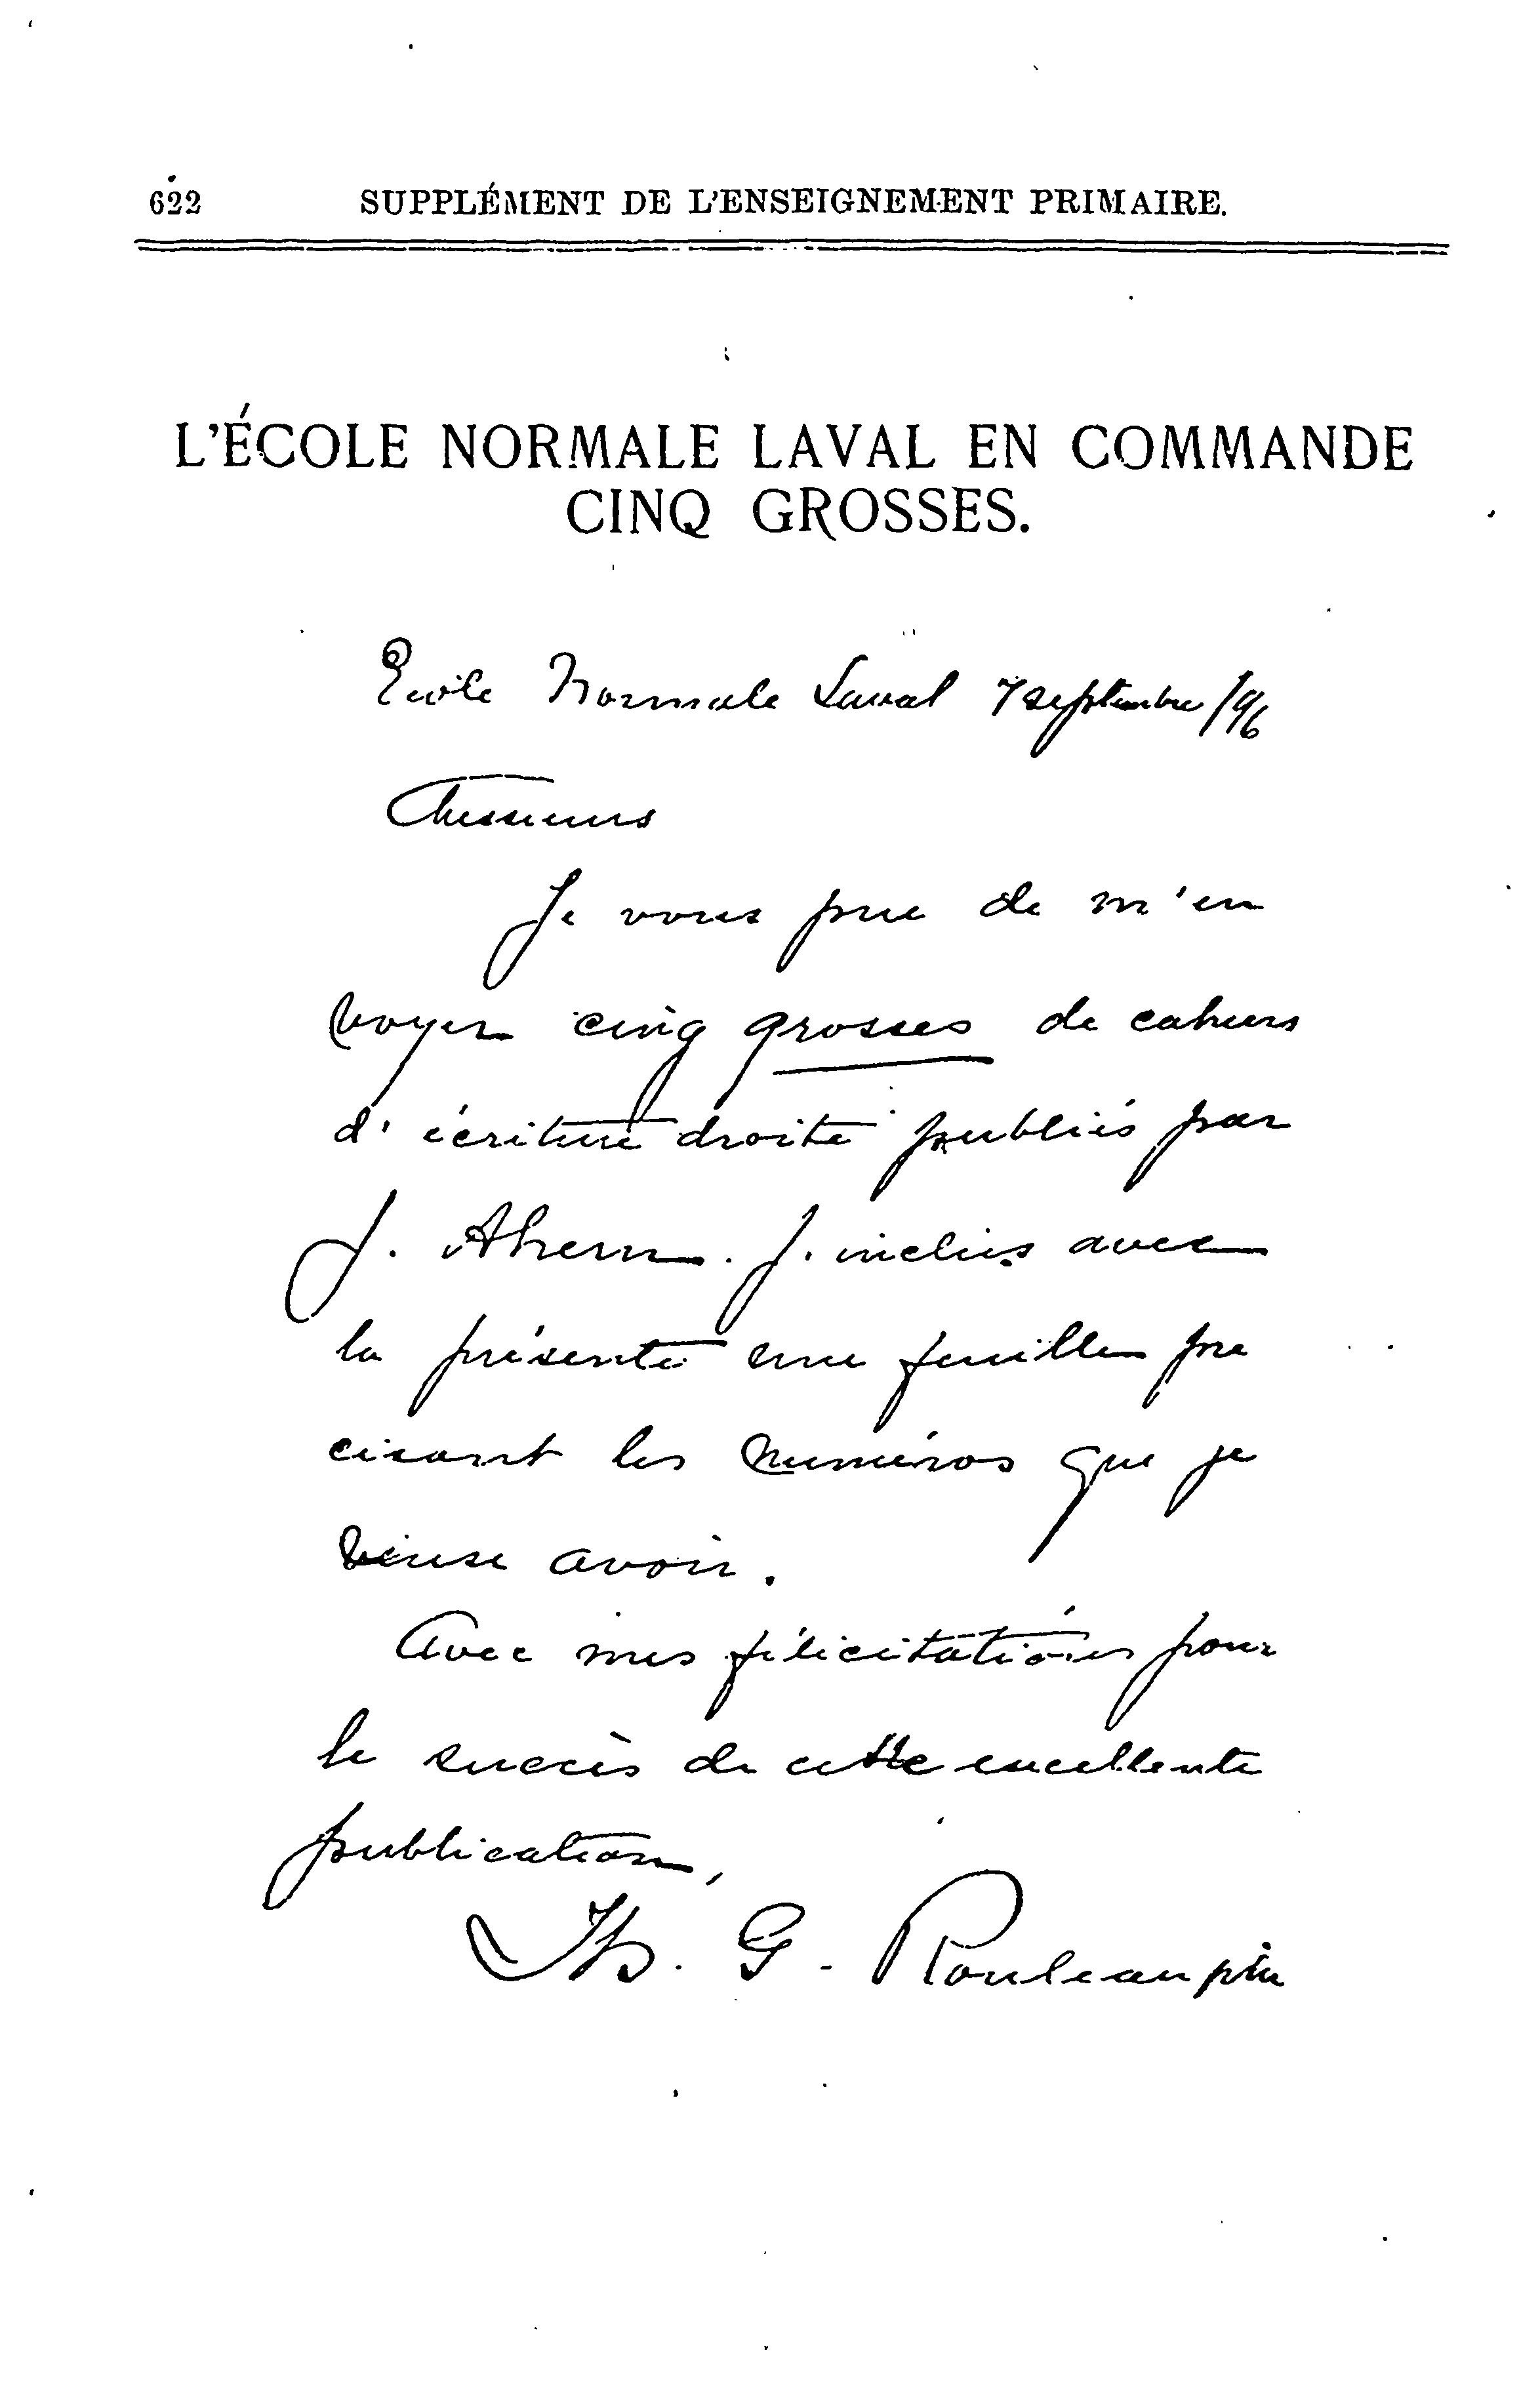 622 SUPPLÉMENT DE L'ENSEIGNEMENT PRIMAIRE.
L'ÉCOLE NORMALE LAVAL EN COMMANDE
CINQ GROSSES.
Ecole Normale Laval 7 septembre /96
Messieurs
Je vous prie de m'en
voyer cinq grosses de cahiers
d'écriture droite publiés par
J. Ahern. J'inclus avec
la présente une feuille pré
cisant les numéros que je
veux avoir.
Avec mes félicitations pour
le succès de cette excellente
publication,
Th. G. Rouleau ptre